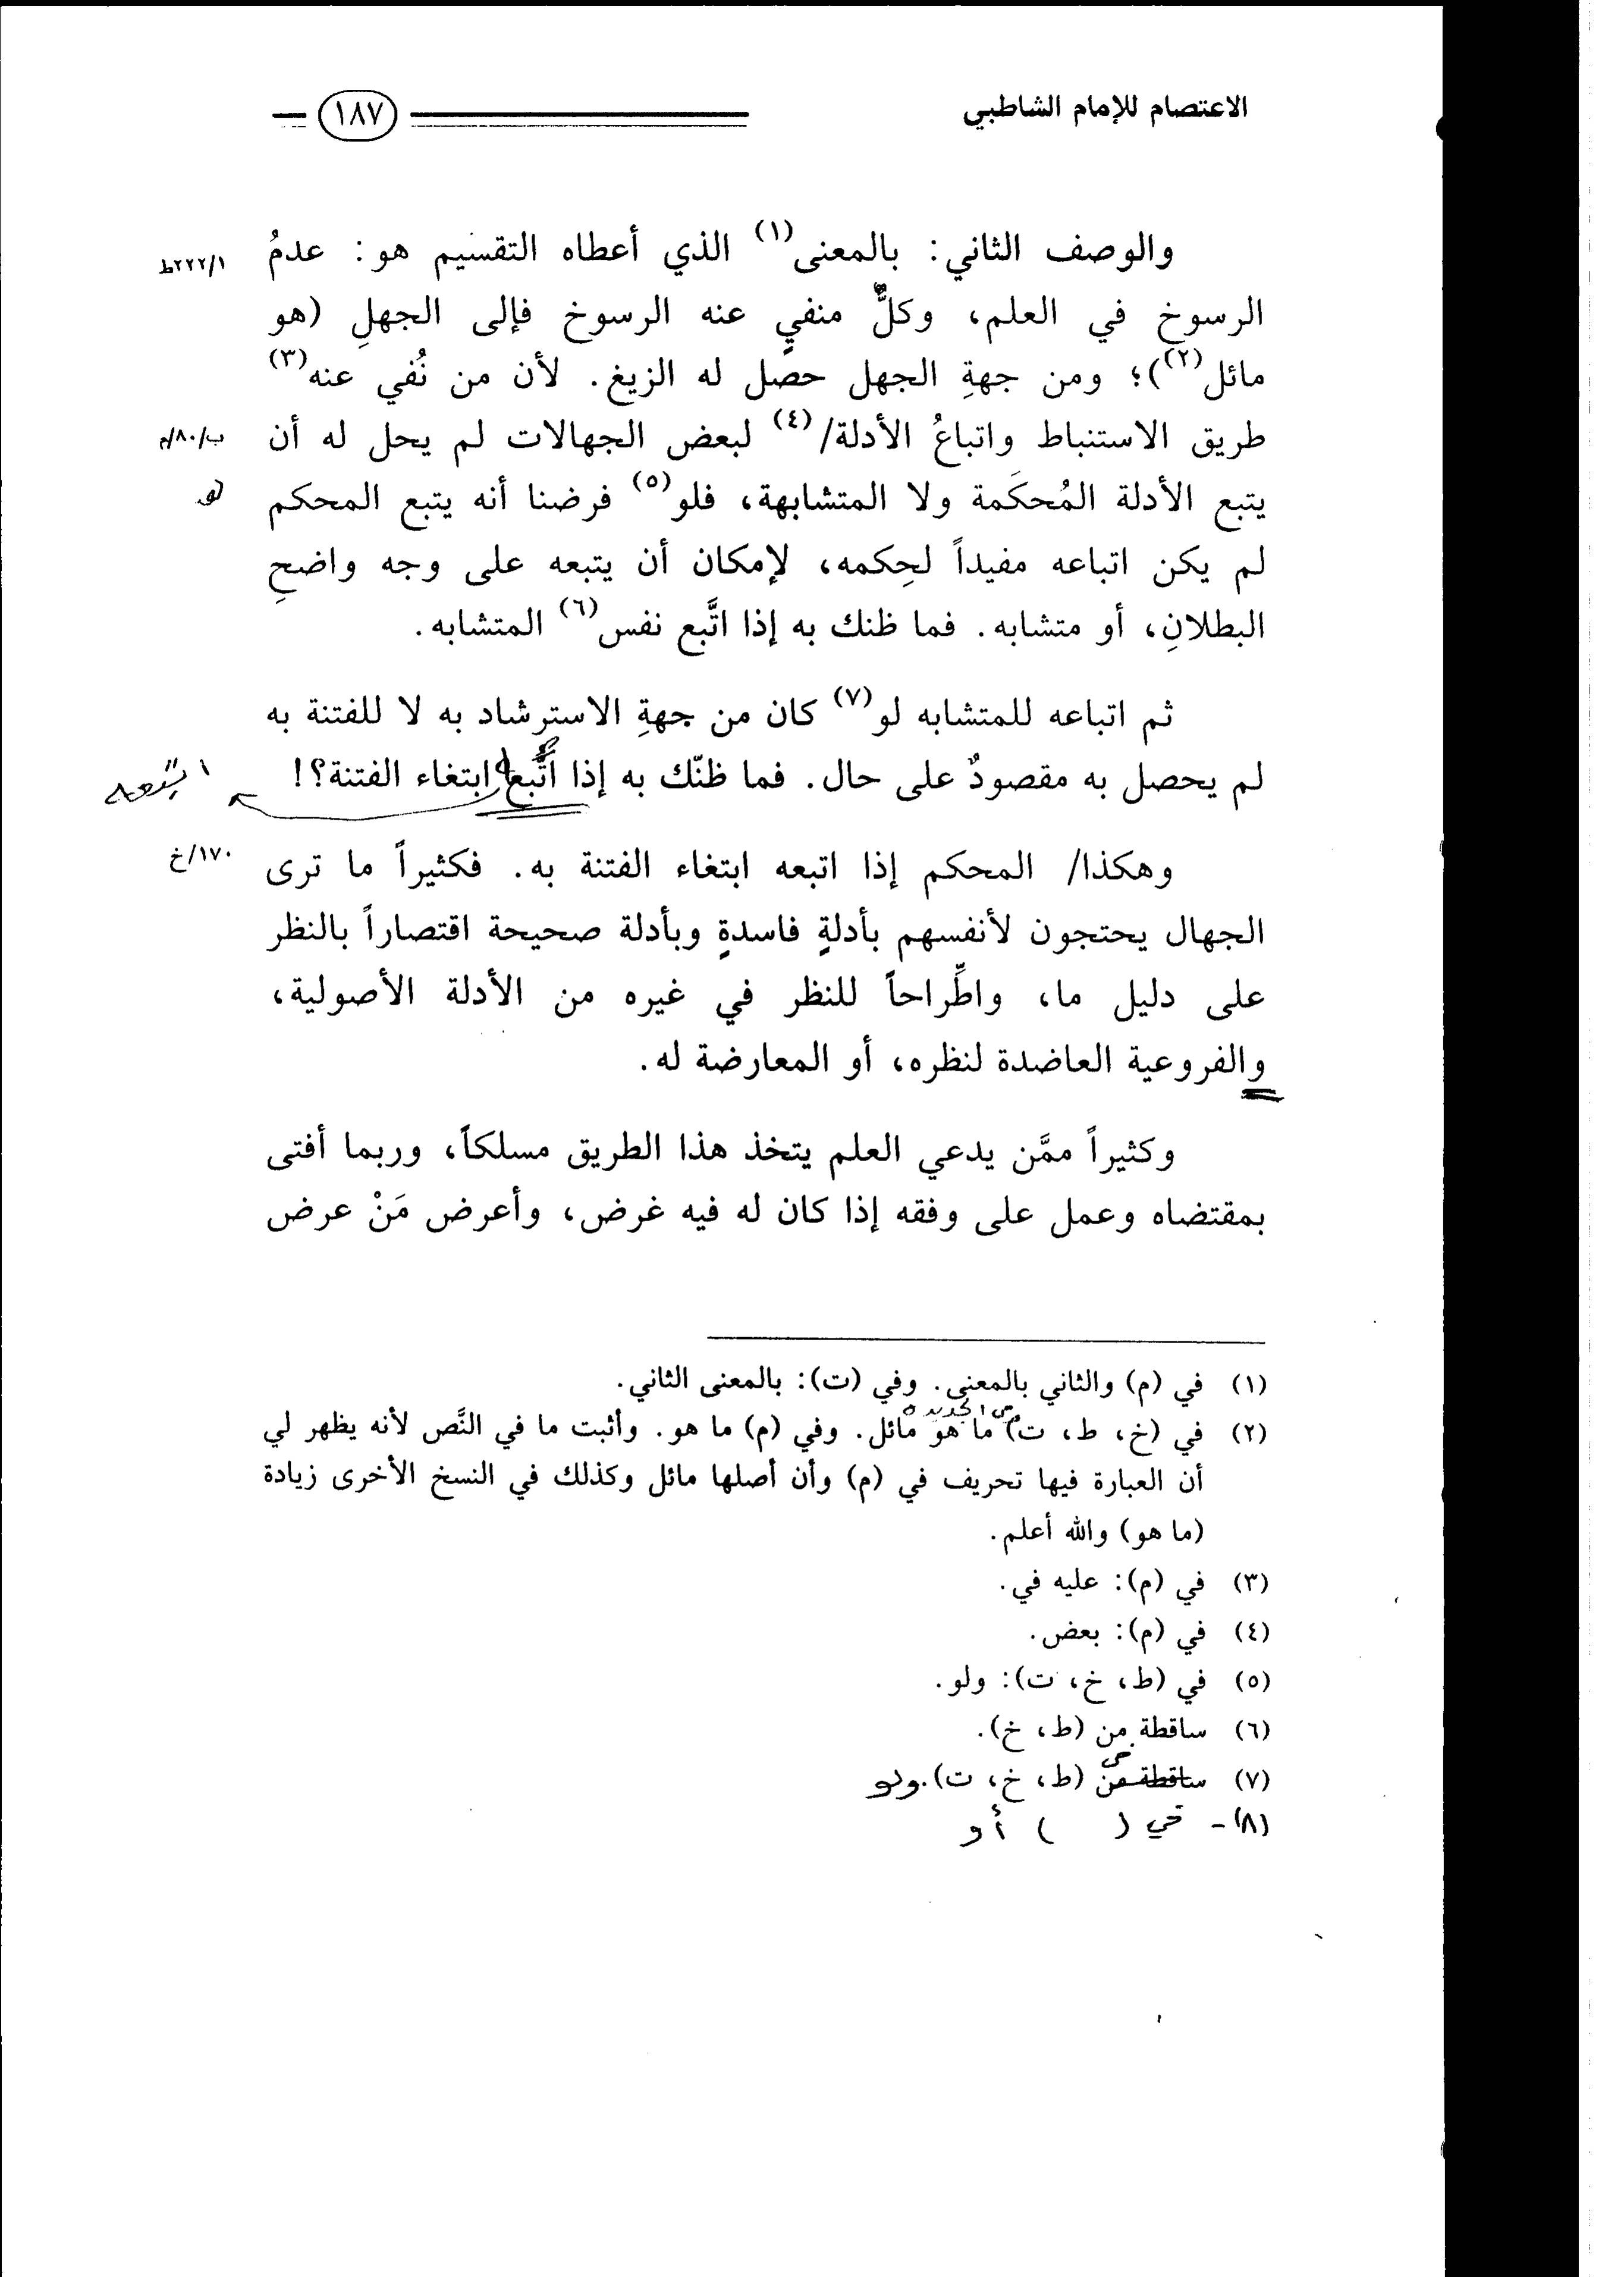 الاعتصام للإمام الشاطبي ١٨٧
والوصف الثاني: بالمعنى(١) الذي أعطاه التقسيم هو: عدمُ ١/٢٢٢ط
الرسوخ في العلم، وكلٌّ منفيٍ عنه الرسوخ فإلى الجهلِ (هو
مائل(٢))؛ ومن جهةِ الجهل حصل له الزيغ. لأن من نُفي عنه(٣)
طريق الاستنباط واتباعُ الأدلة/(٤) لبعض الجهالات لم يحل له أن ب/٨٠/م
يتبع الأدلة المُحكَمة ولا المتشابهة، فلو(٥) فرضنا أنه يتبع المحكم
لم يكن اتباعه مفيداً لحِكمه، لإمكان أن يتبعه على وجه واضحِ
البطلانِ، أو متشابه. فما ظنك به إذا اتَّبع نفس(٦) المتشابه.
ثم اتباعه للمتشابه لو(٧) كان من جهةِ الاسترشاد به لا للفتنة به
لم يحصل به مقصودٌ على حال. فما ظنّك به إذا اتَّبع ابتغاء الفتنة؟! اتبعه
وهكذا/ المحكم إذا اتبعه ابتغاء الفتنة به. فكثيراً ما ترى ١٧٠/خ
الجهال يحتجون لأنفسهم بأدلةٍ فاسدةٍ وبأدلة صحيحة اقتصاراً بالنظر
على دليل ما، واطِّراحاً للنظر في غيره من الأدلة الأصولية،
والفروعية العاضدة لنظره، أو المعارضة له.
وكثيراً ممَّن يدعي العلم يتخذ هذا الطريق مسلكاً، وربما أفتى
بمقتضاه وعمل على وفقه إذا كان له فيه غرض، وأعرض مَنْ عرض
(١) في (م) والثاني بالمعنى. وفي (ت): بالمعنى الثاني.
(٢) في (خ، ط، ت) ما هو مائل. وفي (م) ما هو. وأثبت ما في النَّص لأنه يظهر لي
أن العبارة فيها تحريف في (م) وأن أصلها مائل وكذلك في النسخ الأخرى زيادة
(ما هو) والله أعلم.
(٣) في (م): عليه في.
(٤) في (م): بعض.
(٥) في (ط، خ، ت): ولو.
(٦) ساقطة من (ط، خ).
(٧) ساقطة من في (ط، خ، ت). ولو
(٨) - في ( ) أو